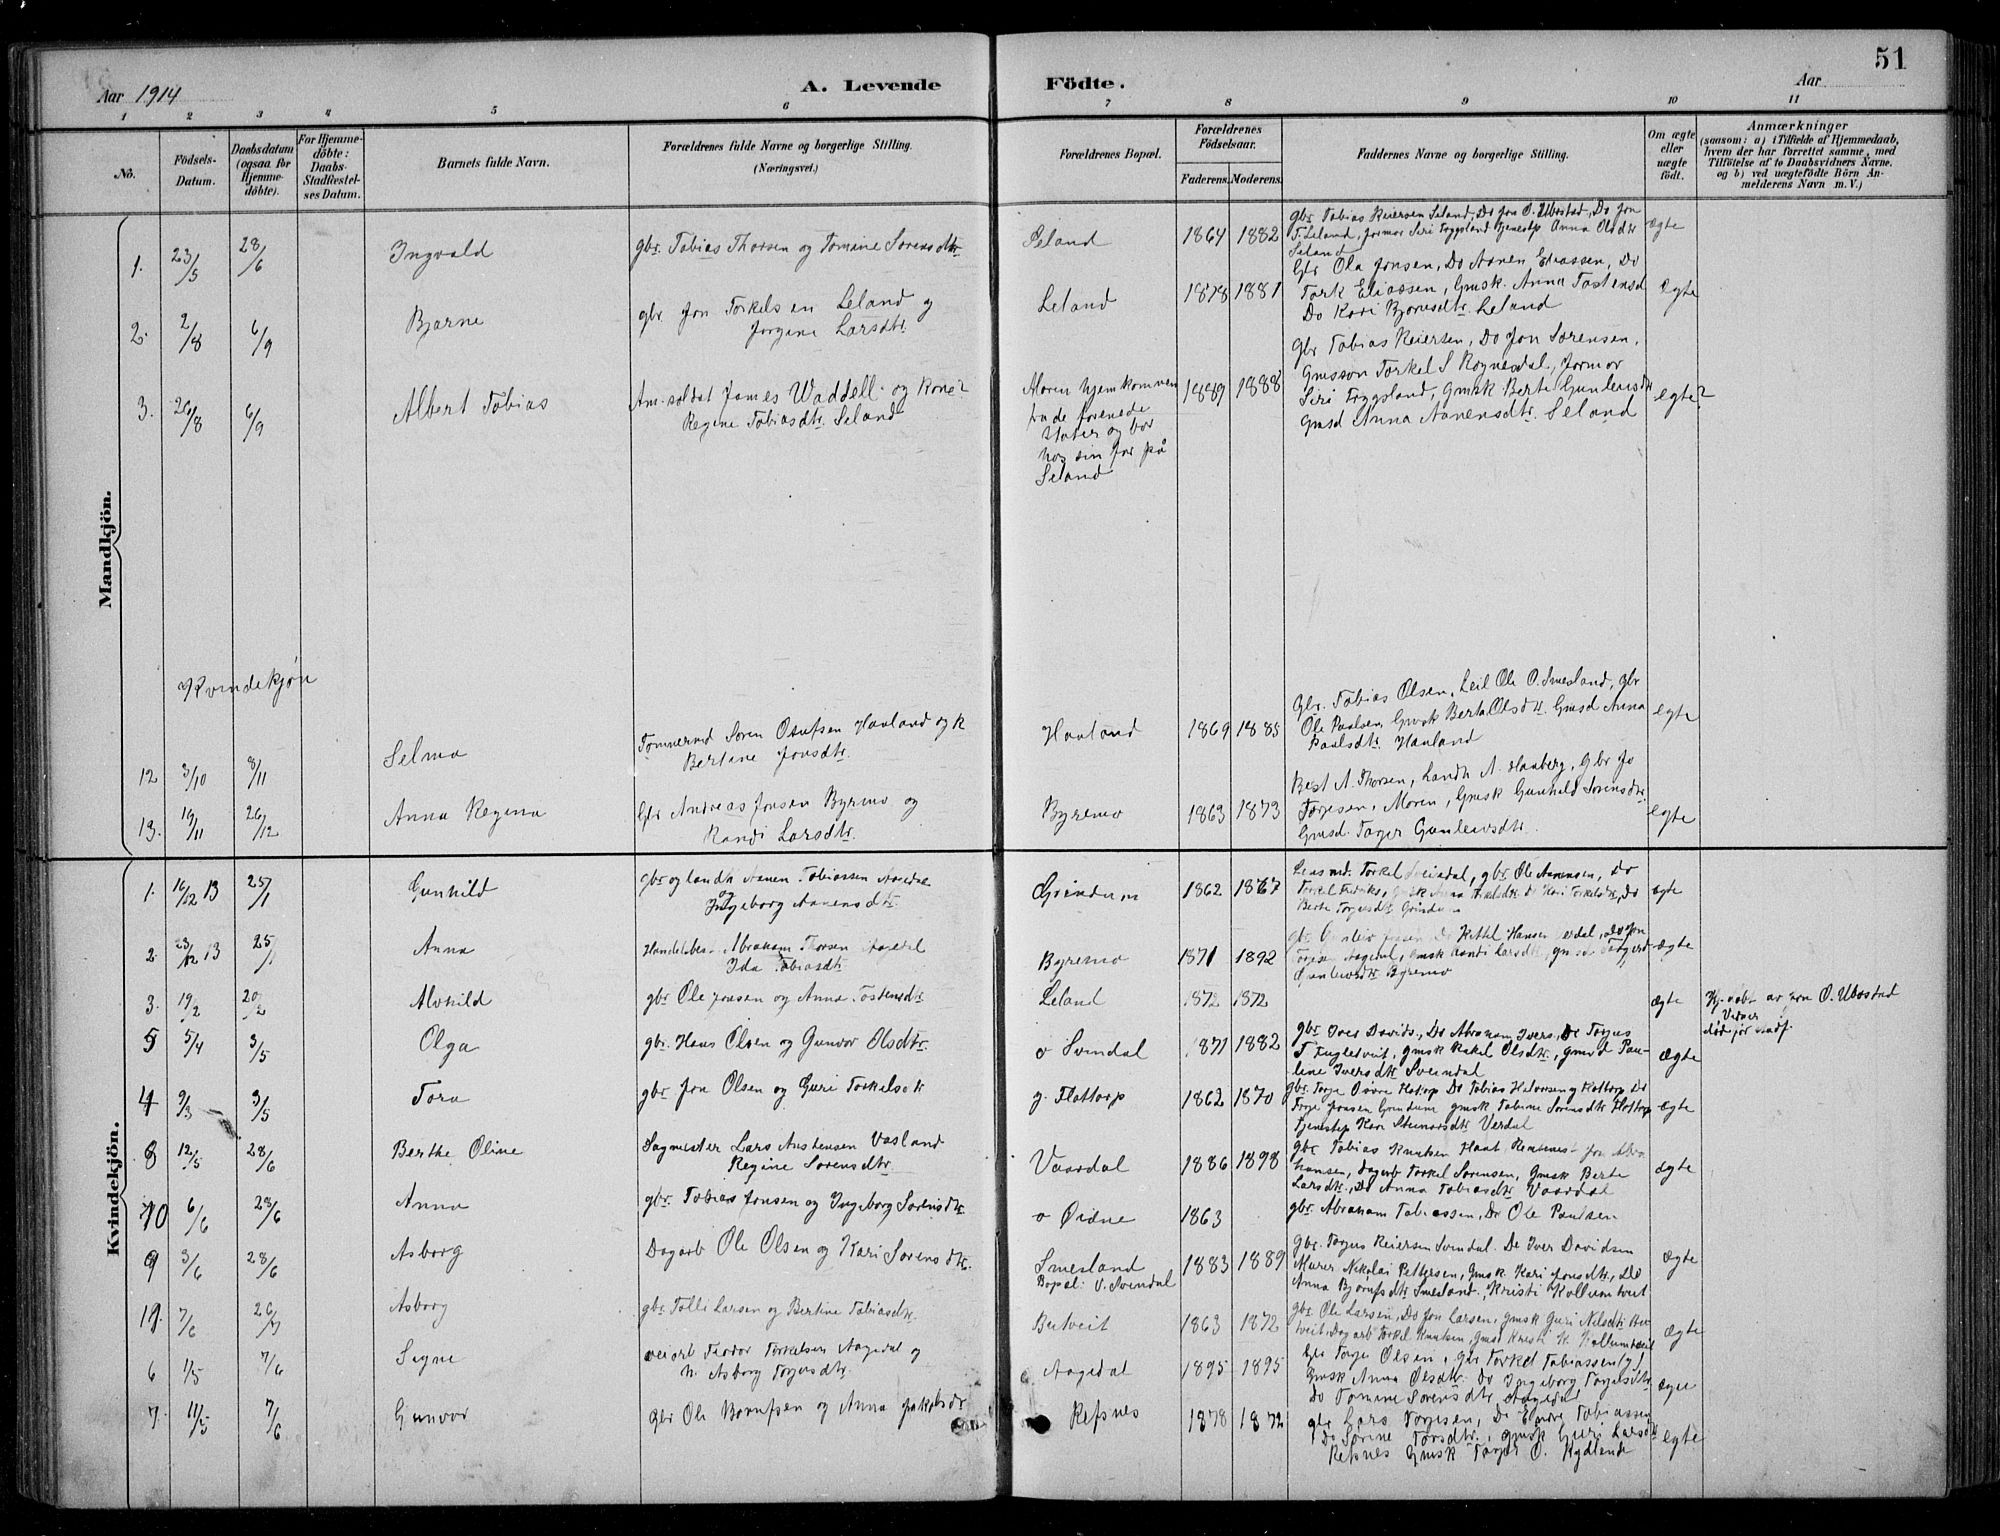 51
Aar 1914
A. Levende Födte.
Aar
1 2 3 4 5 6 7 8 9 10 11
No.
Födsels-Datum.
Daabsdatum (ogsaa for Hjemmedöbte).
For Hjemmedöbte: Daabs-Stadfæstelses Datum.
Barnets fulde Navn.
Forældrenes fulde Navne og borgerlige Stilling. (Næringsvei.)
Forældrenes Bopæl.
Forældrenes Födselsaar.
Faderens. Moderens.
Faddernes Navne og borgerlige Stilling.
Om ægte eller uægte födt.
Anmærkninger
(saasom: a) i Tilfælde af Hjemmedaab, hvem der har forrettet samme, med Tilföielse af to Daabsvidners Navne, og b) ved uægtefödte Börn Anmelderens Navn m. V.)
Mandkjön.
1. 23/5 28/6 Ingvald gbr. Tobias Thorsen og Tomine Sorensdtr. Seland 1864 1882 ægte
gbr Tobias Reiersen Seland, Do Jon O. Ubostad, Do Jon
T. Leland, formor Siri Foggsland Tjenestep Anna Olsdtr
Seland
2. 2/8 6/9 Bjarne gbr Jon Torkelsen Leland og
Jorgine Larsdtr. Leland 1878 1881 Ægte
Gbr Ola Jonsen, Do Aanen Eliassen, Do
Tork Eliassen, Gmsk. Anna Tostensd
Do Kari Bjornsdtr. Leland
3. 26/8 6/9 Albert Tobias Am. soldat James Waddell og Kone?
Regine Tobiasdtr. Seland
Moren hjemkommen
fra de forenede
stater og bor
hos sin far på
Seland
1889 1888 egte?
Gbr Tobias Reiersen, Do Jon Sorensen,
Gmsson Torkel S Rognesdal, formor
Siri Foggsland, Gmsk Berte Gunleusdtr
Gmsd Anna Aanensdtr. Seland
Kvindekjön
12 3/10 8/11 Selma Tommermd Soren Osufsen Hauland og K
Bertine Jonsdtr. Hauland 1869 1885 egte
Gbr. Tobias Olsen, Leil Ole O. Smesland, gbr
Ole Paulsen, Gmsk Berta Olsdtr. Gmsd Anna
Paulsdtr. Hauland
13. 19/11 26/12 Anna Regina Gbr Andreas Jonsen Byremo og
Randi Larsdtr. Byremo 1863 1873 egte
Best A. Thorsen, Landh A. Hauberg, Gbr Jo
Torjesen, Moren, Gmsk Gunhild Sorensdtr.
Gmsd. Torger Gunleivsdtr.
Kvindekjön.
1. 16/12 13 25/1 Gunhild gbr og landh Aanen Tobiassen Aagedal
og Ingeborg Aanensdtr. Grindum 1862 1867 ægte
Lensmd. Torkel Sveindal, gbr Ole Aanensen, Do
Torkel Fredriks, gmsk Anna Torkelsdtr Do Kari Torkelsdtr, Do
Berte Torjusdtr Grindum
2. 23/12 13 25/1 Anna Handelsbe. Abraham Thorsen Aagedal
Ida Tobiasdtr Byremo 1871 1892 ægte
3. 19/2 20/2 Alvhild gbr Ole Jonsen og Anna Tostensdtr Leland 1872 1872 ægte
Hj. døbt av Jon O. Ubostad
død før stadf.
5 5/4 3/5 Olga gbr. Hans Olsen og Gunvor Olsdtr. o Svindal 1871 1882 ægte
gbr. Iver Davids., Do Abraham Ivers, Do Torjus
T Fuglestveit, gmsk Rakel Olsdtr, gmsd Pau-
line Iversdtr Sveindal
4 9/3 3/5 Tora gbr Jon Olsen og Guri Torkelsdtr y. Flottorp 1862 1870 ægte
Torje Jonsen Grindum gmsk Tobine Sorensdtr Flottorp
Tjenestep Kari Steinarsdtr Verdal
8 12/5 28/6 Berthe Oline Sagmester Lars Austensen Vasland
Regine Sorensdtr. Vaardal 1886 1898 ægte
Hansen, Dagarb Torkel Sorensen, Gmsk Berte
Larsdtr., Do Anna Tobiasdtr Vaardal
10 6/6 28/6 Anna gbr. Tobias Jonsen og Ingeborg Sorensdtr. o Øidne 1863
gbr. Abraham Tobiassen, Do Ole Paulsen
9 3/6 28/6 Asborg Dagarb Ole Olsen og Kari Sorensdtr. Smesland
Bopæl: V. Svendal 1883 1889 Ægte
Gbr. Torjus Reiersen Svindal. Do Iver Davidsen
Murer Nikolai Pettersen, Gmsk. Kari Jonsdtr., Do
Anna Bjornfsdtr Smesland, Kristi Kollumtveit
11 7/6 Asborg gbr Tolli Larsen og Bertine Tobiasdtr Butveit 1863 1872 Ægte
gbr. Ole Larsen, Do Jon Larsen, gmsk Guri Nilsdtr But-
veit, Dagarb Torkel Knutsen, Gmsd Kristi K. Kollumtveit
6 1/5 7/6 Signe veiarb Teodor Torkelsen Aagedal og
h. Asborg Torjusdtr. Aagedal 1895 1895 ægte
Gbr Torje Olsen, gbr Torkel Tobiassen
Gmsk Anna Olsdtr. Do Ingeborg Torjusdtr
Do Tomine Sorensdtr Aagedal
7. 11/5 7/6 Gunvor Gbr Ole Bornfsen og Anna Jakobsdr Refsnes 1878 1872 egte
gbr Lars Torjesen, Do Endre Tobiassen
Do Sorine Torsdtr., gmsk Guri Larsdtr
Refsnes Gmsk Torger O. Kydlende